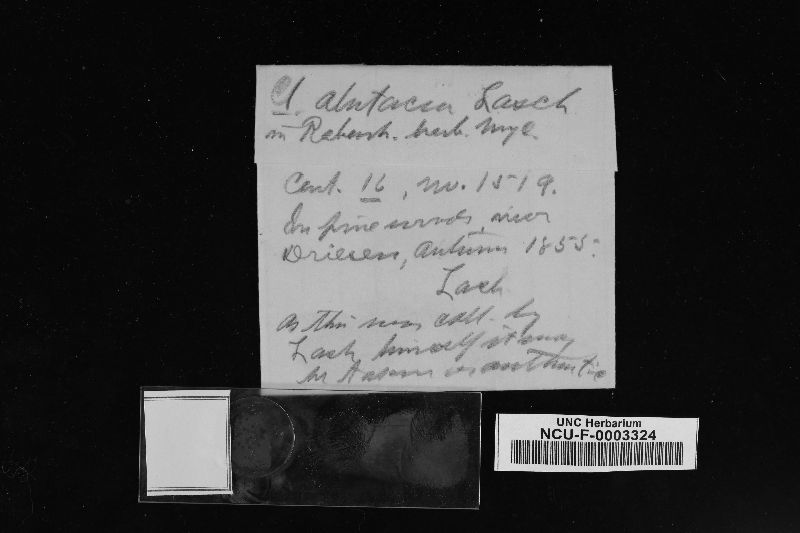 Cl. alutacea Lasch
in Rabenh. herb. Myc.
Cent. 16, no. 1519.
In pine woods, near
Driesen, Autumn 1855.
Lasch
As this was coll. by
Lasch himself it may
be taken as authentic
UNC Herbarium
NCU-F-0003324